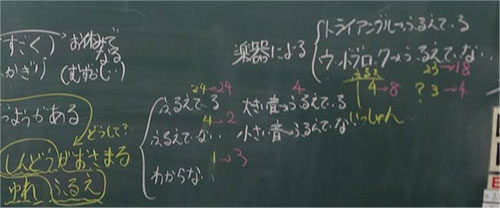 すごく
お休み
なる
かぎり
(むずかしい)
つようがある
どうして?
しんどうがおさまる
ゆれ ふるえ
24→24
ふるえている
4→2
ふるえていない
1→3
わからない
4
大きい音→ふるえている
小さい音→ふるえてない
いっしゅん
楽器による
トライアングル→ふるえている
ウッドブロック→ふるえていない
4→8
23→18
? 3→4